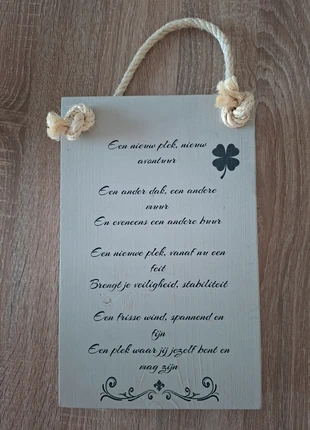 Een nieuw plek, nieuw
avontuur
Een ander dak, een andere
muur
En eveneens een andere buur
Een nieuwe plek, vanaf nu een
feit
Brengt je veiligheid, stabiliteit
Een frisse wind, spannend en
fijn
Een plek waar jij jezelf bent en
mag zijn